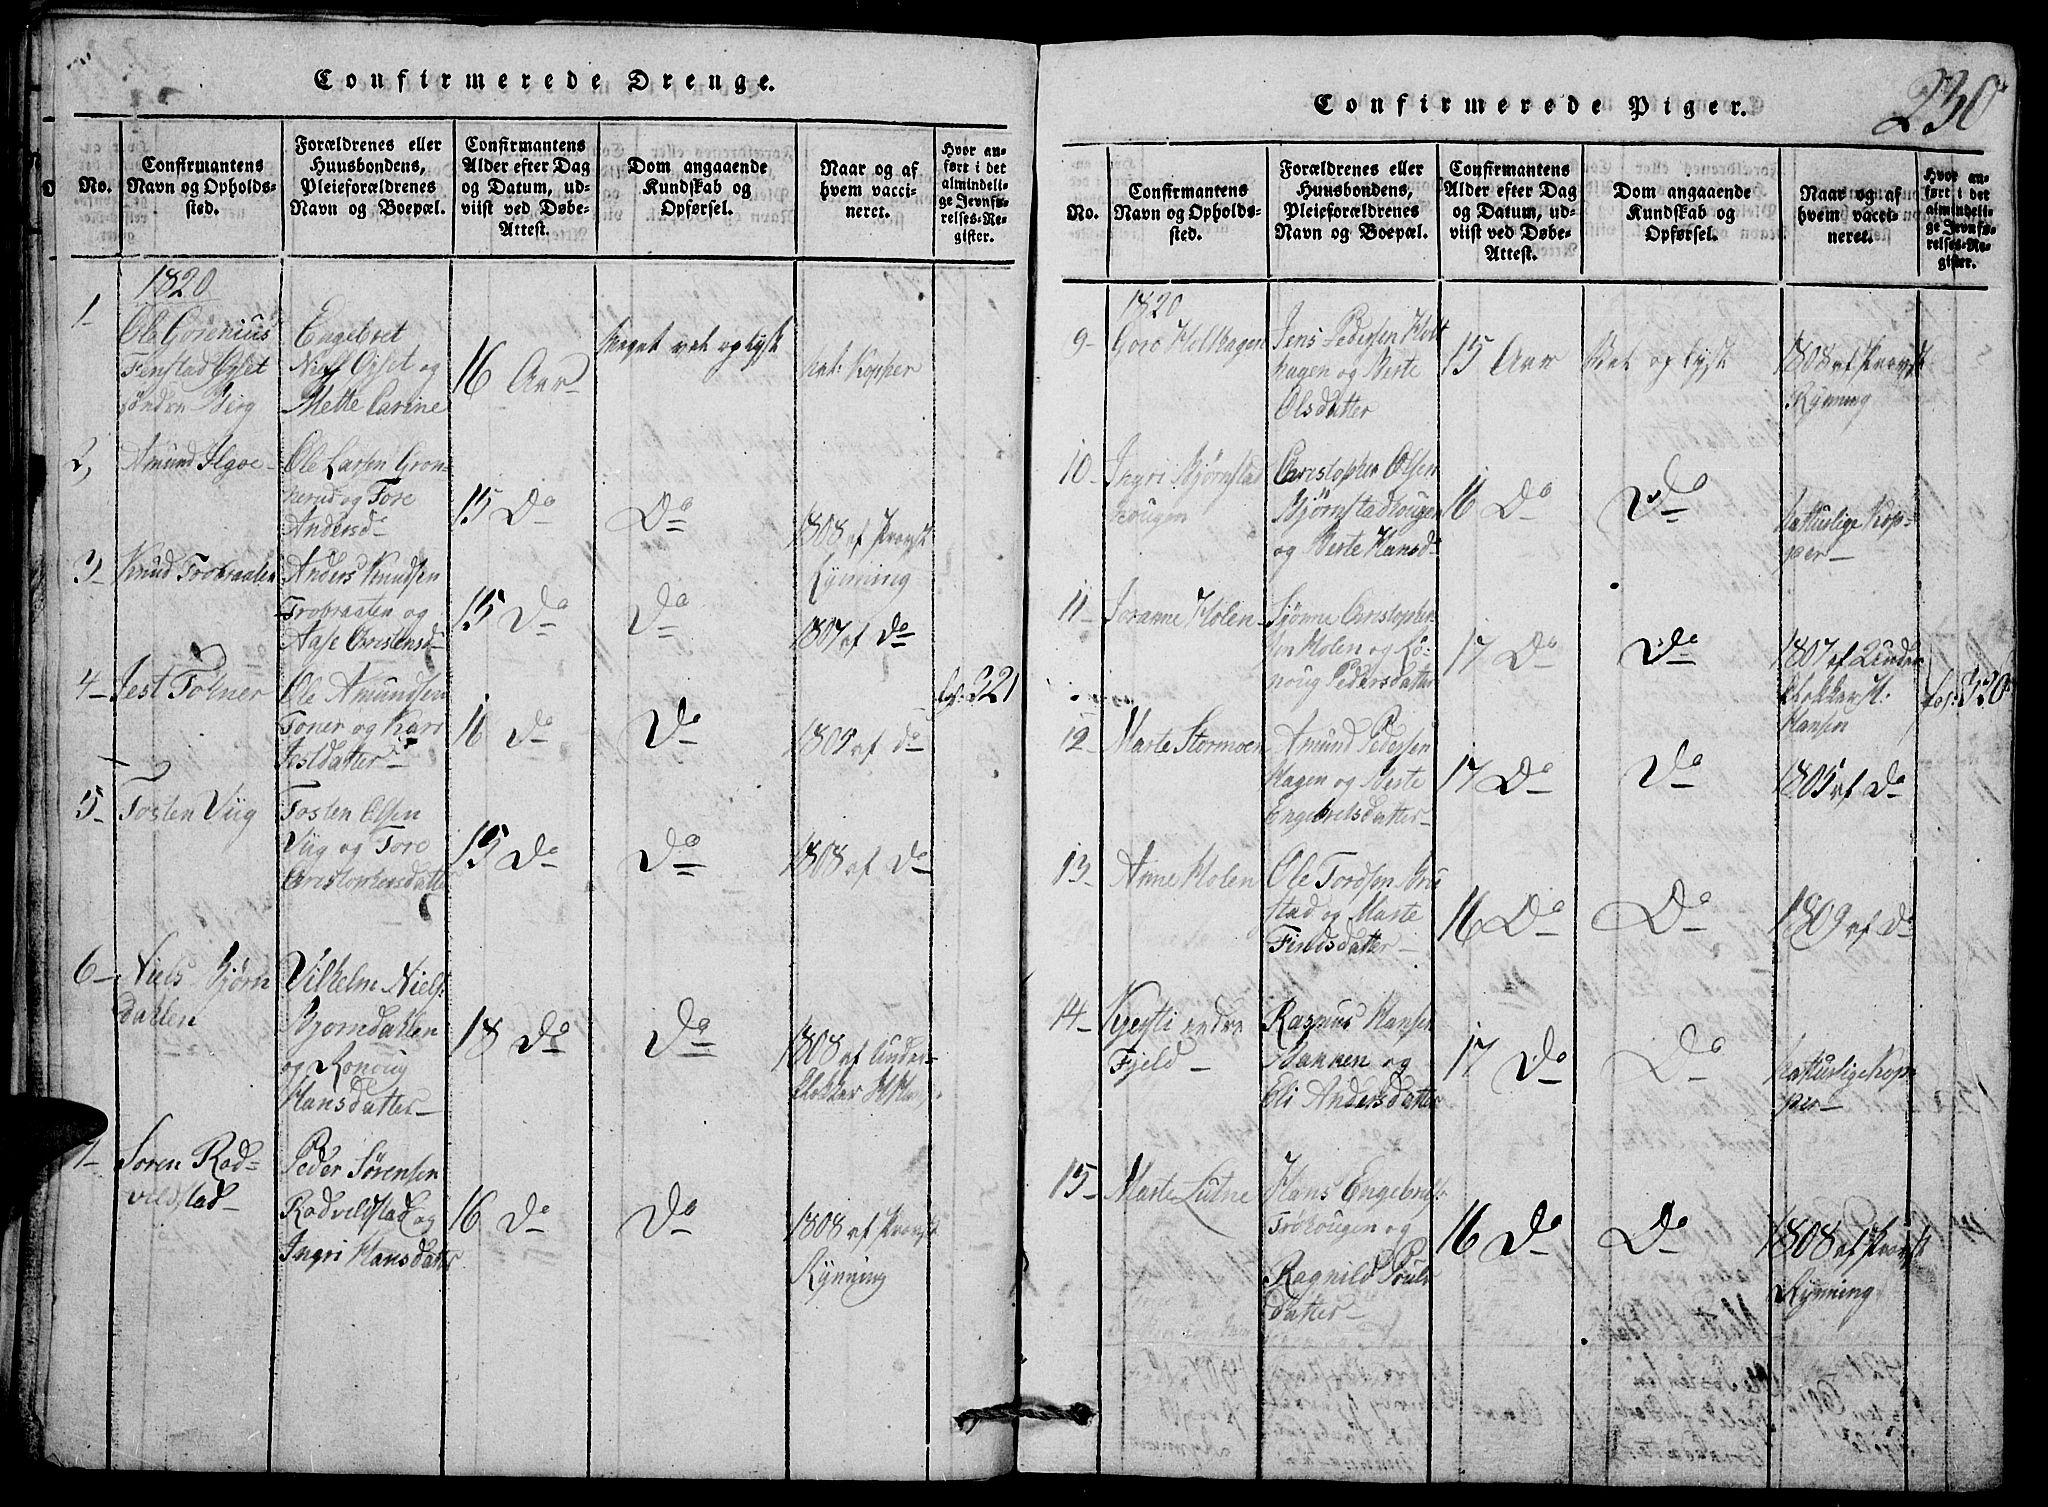 Confirmerede Drenge.
No.
Confirmantens
Navn og Opholds-
sted.
Forældrenes eller
Huusbondens,
Pleieforældrenes
Navn og Boepæl.
Confirmantens
Alder efter Dag
og Datum, ud-
viist ved Døbe-
Attest.
Dom angaaende
Kundskab og
Opførsel.
Naar og af
hvem vacci-
neret.
Hvor an-
ført i det
almindeli-
ge Jevnfø-
relses-Re-
gister.
1820
1-
Ole Gorenius
Fenstad Opset
søndre Berg
Engebret
Opset og
Mette Carine
16 Aar
Meget vel oplyst
nat: Kopper
2,
Amund Ilgoe-
Ole Larsen Gron-
nerud og Tore
Andersd-
15 Do
Do
1808 af Provst
Rynning
3-
Knud Trobraaten
Anders Knudsen
Trobraaten og
Aase Christensd-
15 Do
Do
1807 af Do
4-
Jest Tolner
Ole Amundsen
Toner og Kari
Jestdatter-
16 Do
Do
1805 af Do
fol: 321
5-
Tosten Viig
Tosten Olsen
Viig og Tore
Christophersdatter
15 Do
Do
1808 af Do
6-
Niels Bjørn
dallen
Vilhelm Niels:
Bjorndallen
og Ronoug
Hansdatter-
18 Do
Do
1808 af Under-
klokker
7-
Soren Rod-
velstad-
Peder Sørensen
Rodvelstad og
Ingri Hansdatter
16 Do
Do
1808 af Provst
Rynning
230
Confirmerede Piger.
No.
Confirmantens
Navn og Opholds-
sted.
Forældrenes eller
Huusbondens,
Pleieforældrenes
Navn og Boepæl.
Confirmantens
Alder efter Dag
og Datum, ud-
viist ved Døbe-
Attest.
Dom angaaende
Kundskab og
Opførsel.
Naar og af
hvem vacci-
neret.
Hvor an-
ført i det
almindeli-
ge Jevnfø-
relses-Re-
gister.
1820
9-
Goro Holthagen
Jens Pedersen Holt
hagen og Berte
Olsdatter
15 Aar
Vel oplyst
1808 af Provst
Rynning
10-
Ingri Bjørnstad
hougen
Christopher Olsen
Bjørnstadhougen
og Berte Hansd-
16 Do
Do
naturlige Kop-
per-
11-
Joranne Holen-
Sjønne Christopher
sen Holen og Rø-
noug Pedersdatter
17 Do
Do
1807 af Under
klokker
Hansen
fol: 320
12-
Marte Stormoen
Amund Pedersen
Hagen og Berte
Engebretsdatter-
17 Do
Do
1805 af Do
13-
Anne Holen
Ole Tordsen Bru
stad og Marte
Findsdatter-
16 Do
Do
1809 af Do
14-
Kjersti nedre
Fjeld-
Rasmus Hansen
Bakken og
Eli Andersdatter
17 Do
Do
naturlige Kop
per-
15-
Marte Lutne
Hans Engebrets:
Trøhougen og
Ragnild Pouls
datter-
16 Do
Do
1808 af Provst
Rynning